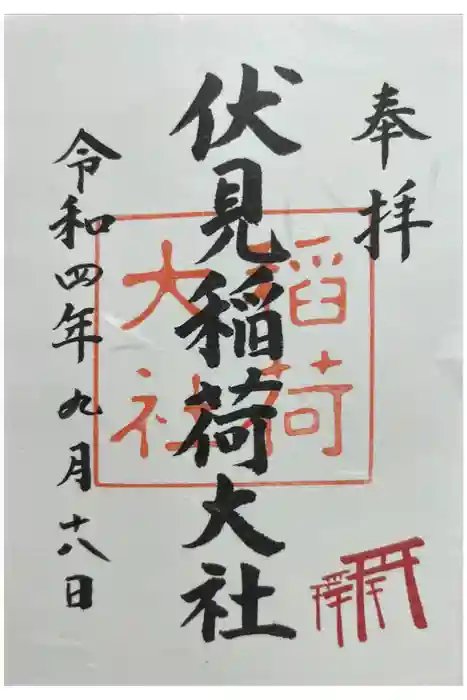 奉拝
伏見稲荷大社
稲荷
大社
令和四年九月十八日